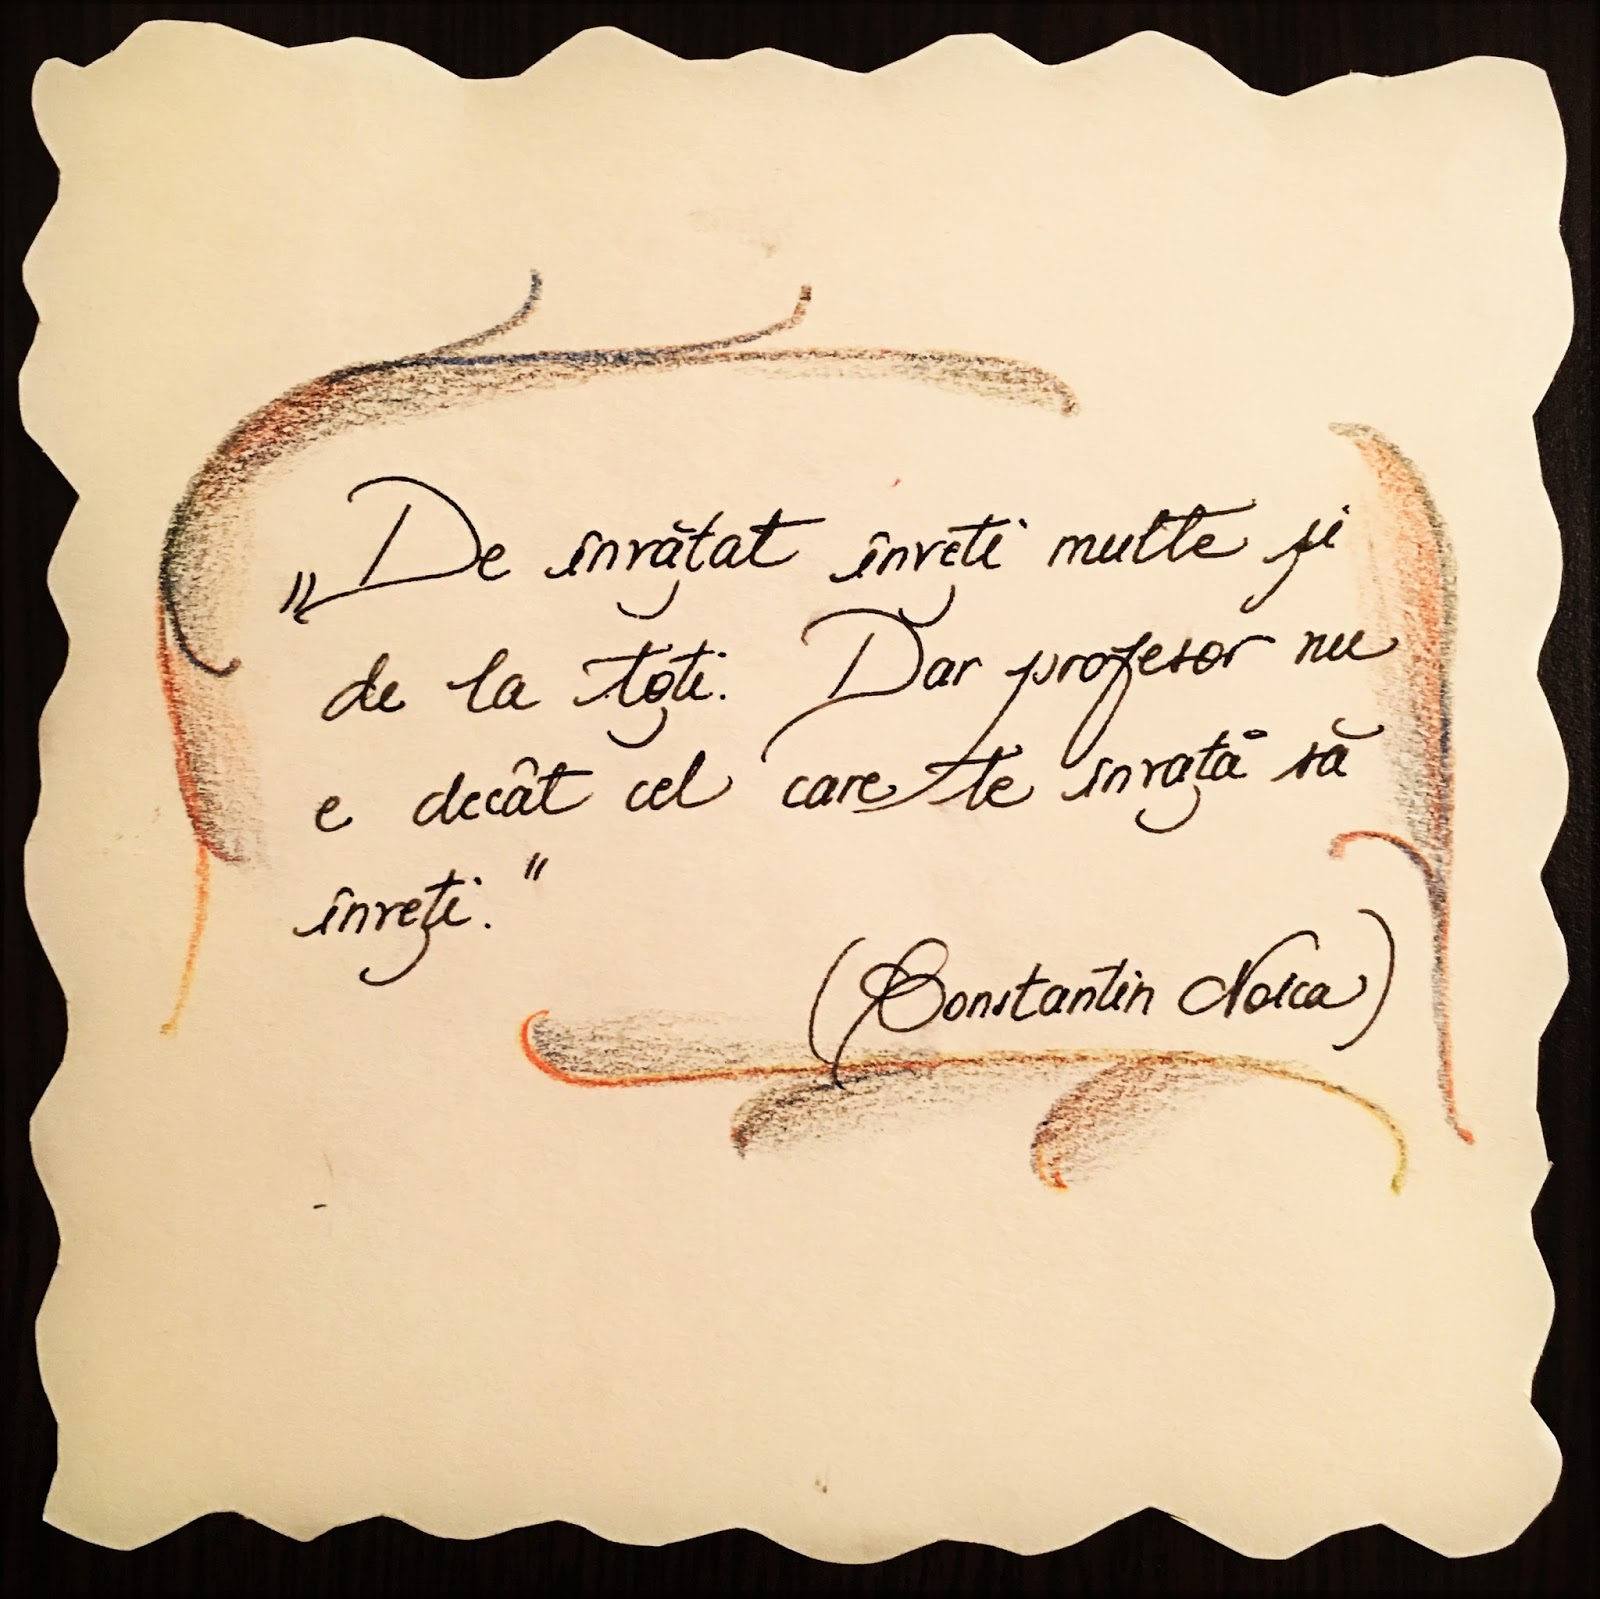 „De învățat înveți multe și
de la toți. Dar profesor nu
e decât cel care te învață să
înveți."
(Constantin Noica)